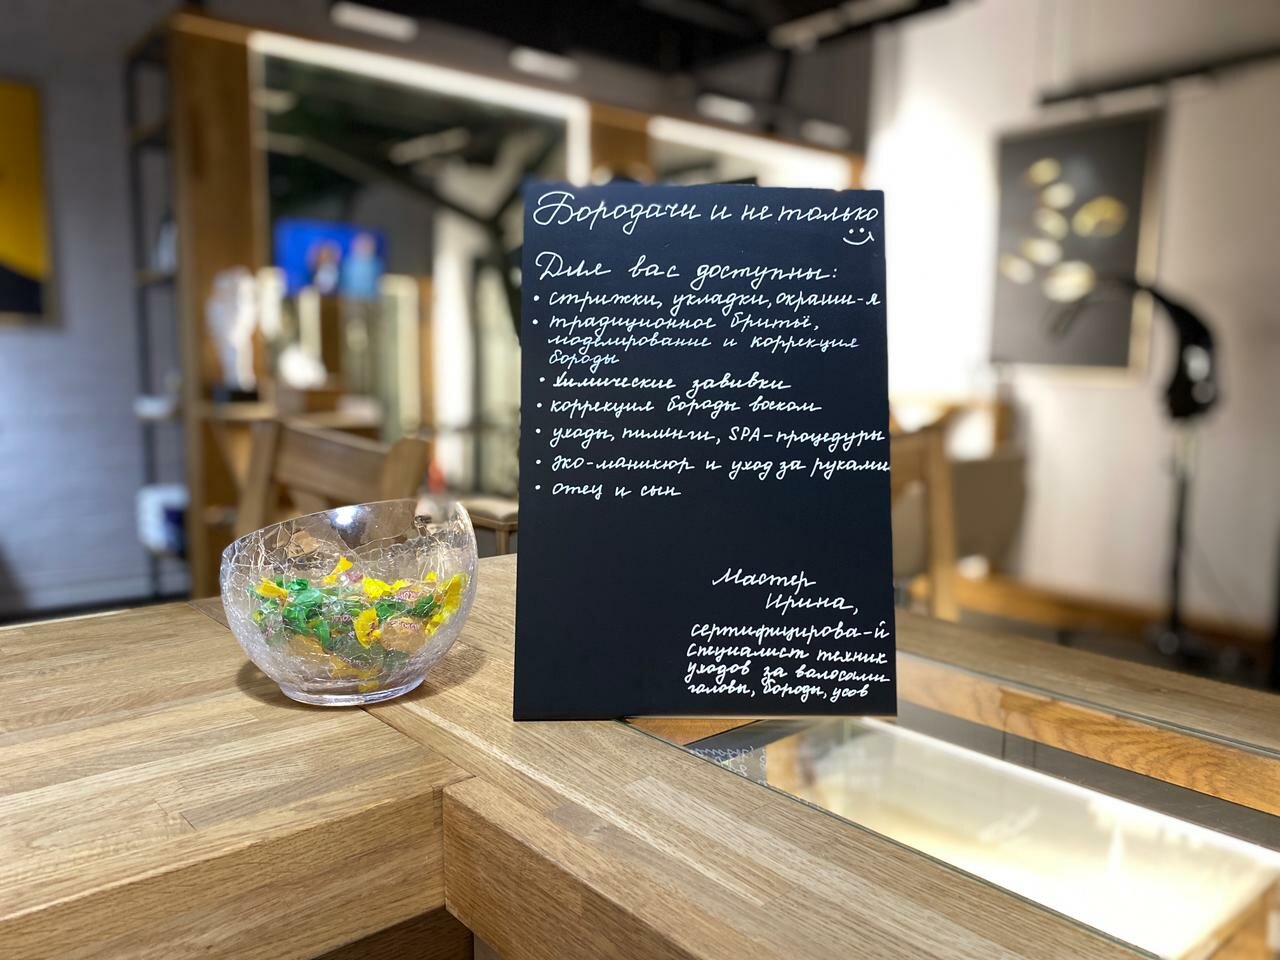 Бородачи и не только
Для вас доступны:
• стрижки, укладки, окраши-я
• традиционное бритьё,
моделирование и коррекция
бороды
• химические завивки
• коррекция бороды воском
• уходы, пилинги, SPA-процедуры
• эко-маникюр и уход за руками
• отец и сын
Мастер
Ирина,
сертифицирова-й
специалист техник
уходов за волосами
головы, бороды, усов